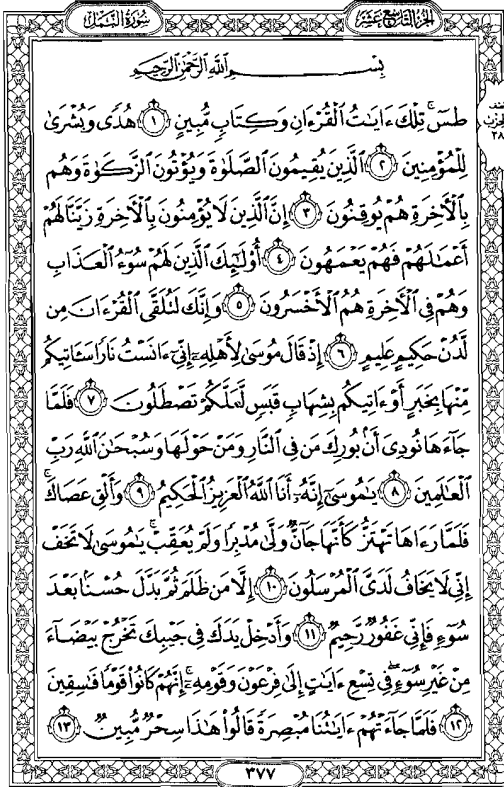 الجزء التاسع عشر
سورة النمل
بِسْمِ اللَّهِ الرَّحْمَٰنِ الرَّحِيمِ
طسٓ ۚ تِلْكَ ءَايَٰتُ ٱلْقُرْءَانِ وَكِتَابٍ مُّبِينٍ ١ هُدًى وَبُشْرَىٰ
لِلْمُؤْمِنِينَ ٢ ٱلَّذِينَ يُقِيمُونَ ٱلصَّلَوٰةَ وَيُؤْتُونَ ٱلزَّكَوٰةَ وَهُم
بِٱلْءَاخِرَةِ هُمْ يُوقِنُونَ ٣ إِنَّ ٱلَّذِينَ لَا يُؤْمِنُونَ بِٱلْءَاخِرَةِ زَيَّنَّا لَهُمْ
أَعْمَٰلَهُمْ فَهُمْ يَعْمَهُونَ ٤ أُو۟لَٰٓئِكَ ٱلَّذِينَ لَهُمْ سُوٓءُ ٱلْعَذَابِ
وَهُمْ فِى ٱلْءَاخِرَةِ هُمُ ٱلْأَخْسَرُونَ ٥ وَإِنَّكَ لَتُلَقَّى ٱلْقُرْءَانَ مِن
لَّدُنْ حَكِيمٍ عَلِيمٍ ٦ إِذْ قَالَ مُوسَىٰ لِأَهْلِهِۦٓ إِنِّىٓ ءَانَسْتُ نَارًا سَـَٔاتِيكُم
مِّنْهَا بِخَبَرٍ أَوْ ءَاتِيكُم بِشِهَابٍ قَبَسٍ لَّعَلَّكُمْ تَصْطَلُونَ ٧ فَلَمَّا
جَآءَهَا نُودِىَ أَنۢ بُورِكَ مَن فِى ٱلنَّارِ وَمَنْ حَوْلَهَا وَسُبْحَٰنَ ٱللَّهِ رَبِّ
ٱلْعَٰلَمِينَ ٨ يَٰمُوسَىٰٓ إِنَّهُۥٓ أَنَا ٱللَّهُ ٱلْعَزِيزُ ٱلْحَكِيمُ ٩ وَأَلْقِ عَصَاكَ ۚ
فَلَمَّا رَءَاهَا تَهْتَزُّ كَأَنَّهَا جَآنٌّ وَلَّىٰ مُدْبِرًا وَلَمْ يُعَقِّبْ ۚ يَٰمُوسَىٰ لَا تَخَفْ
إِنِّى لَا يَخَافُ لَدَىَّ ٱلْمُرْسَلُونَ ١٠ إِلَّا مَن ظَلَمَ ثُمَّ بَدَّلَ حُسْنًۢا بَعْدَ
سُوٓءٍ فَإِنِّى غَفُورٌ رَّحِيمٌ ١١ وَأَدْخِلْ يَدَكَ فِى جَيْبِكَ تَخْرُجْ بَيْضَآءَ
مِنْ غَيْرِ سُوٓءٍ ۖ فِى تِسْعِ ءَايَٰتٍ إِلَىٰ فِرْعَوْنَ وَقَوْمِهِۦٓ ۚ إِنَّهُمْ كَانُوا۟ قَوْمًا فَٰسِقِينَ
١٢ فَلَمَّا جَآءَتْهُمْ ءَايَٰتُنَا مُبْصِرَةً قَالُوا۟ هَٰذَا سِحْرٌ مُّبِينٌ ١٣
نصف
الحزب
٣٨
٣٧٧